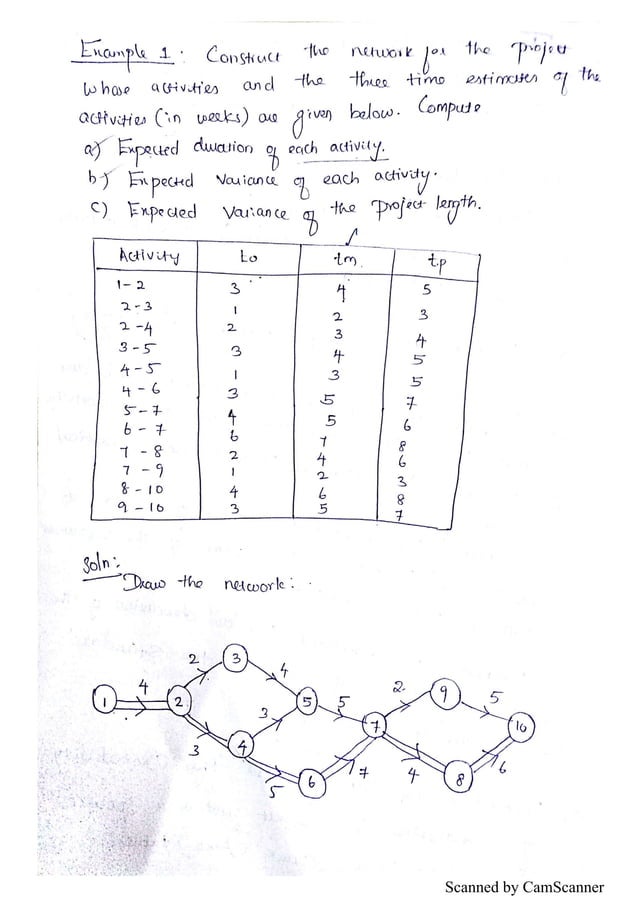 Example 1 : Construct the network for the project
whose activities and the three time estimates of the
activities (in weeks) are given below. Compute
a) Expected duration of each activity.
b) Expected Variance of each activity.
c) Expected Variance of the project length.
Activity to tm tp
1-2 3 4 5
2-3 1 2 3
2-4 2 3 4
3-5 3 4 5
4-5 1 3 5
4-6 3 5 7
5-7 4 5 6
6-7 6 7 8
7-8 2 4 6
7-9 1 2 3
8-10 4 6 8
9-10 3 5 7
Soln:
Draw the network:
1 4 2 2 3 4 5 5 7 2 9 5 10
3 4 3 5 6 7 4 8 6
Scanned by CamScanner